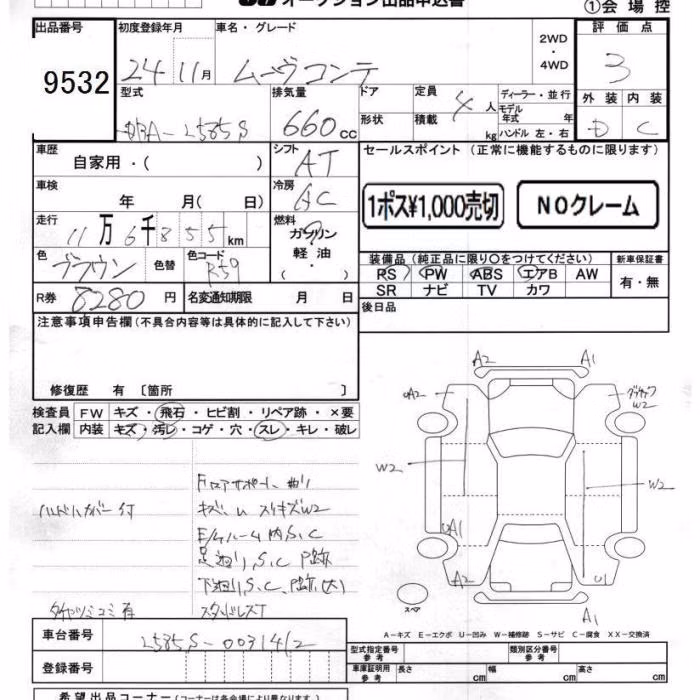 オークション出品申込書
①会場控
出品番号 初度登録年月 車名・グレード 2WD・4WD 評価点
9532 24 11月 ムーヴコンテ 3
型式 排気量 ドア 定員 4人 ディーラー・並行 外装 内装
DBA-L585S 660cc 形状 積載 kg モデル年式 年 ハンドル 左・右 D C
車歴 自家用・( ) シフト AT セールスポイント (正常に機能するものに限ります)
車検 年 月( 日) 冷房 AC
1ポス¥1,000売切 NOクレーム
走行 11万6千855km 燃料 ガソリン 軽油・
色 ブラウン 色替 色コード R59
装備品(純正品に限り○をつけてください) 新車保証書
PS PW ABS エアB AW 有・無
SR ナビ TV カワ
R券 8280円 名変通知期限 月 日 後日品
注意事項申告欄(不具合内容等は具体的に記入して下さい)
修復歴 有 〔箇所 〕
検査員記入欄
FW キズ・飛石・ヒビ割・リペア跡・×要
内装 キズ・汚レ・コゲ・穴・スレ・キレ・破レ
A2 A1
A2
W2
W2
W2
A1
A2 U1
A1
キズ W2
S.C
S.C
スペア
A-キズ E-エクボ U-凹み W-補修跡 S-サビ C-腐食 XX-交換済
車台番号 L585S-0031412
登録番号
型式指定番号 参考 類別区分番号 参考
車庫証明用 参考 長さ cm 幅 cm 高さ cm
希望出品コーナー(コーナーは各会場により異なります)